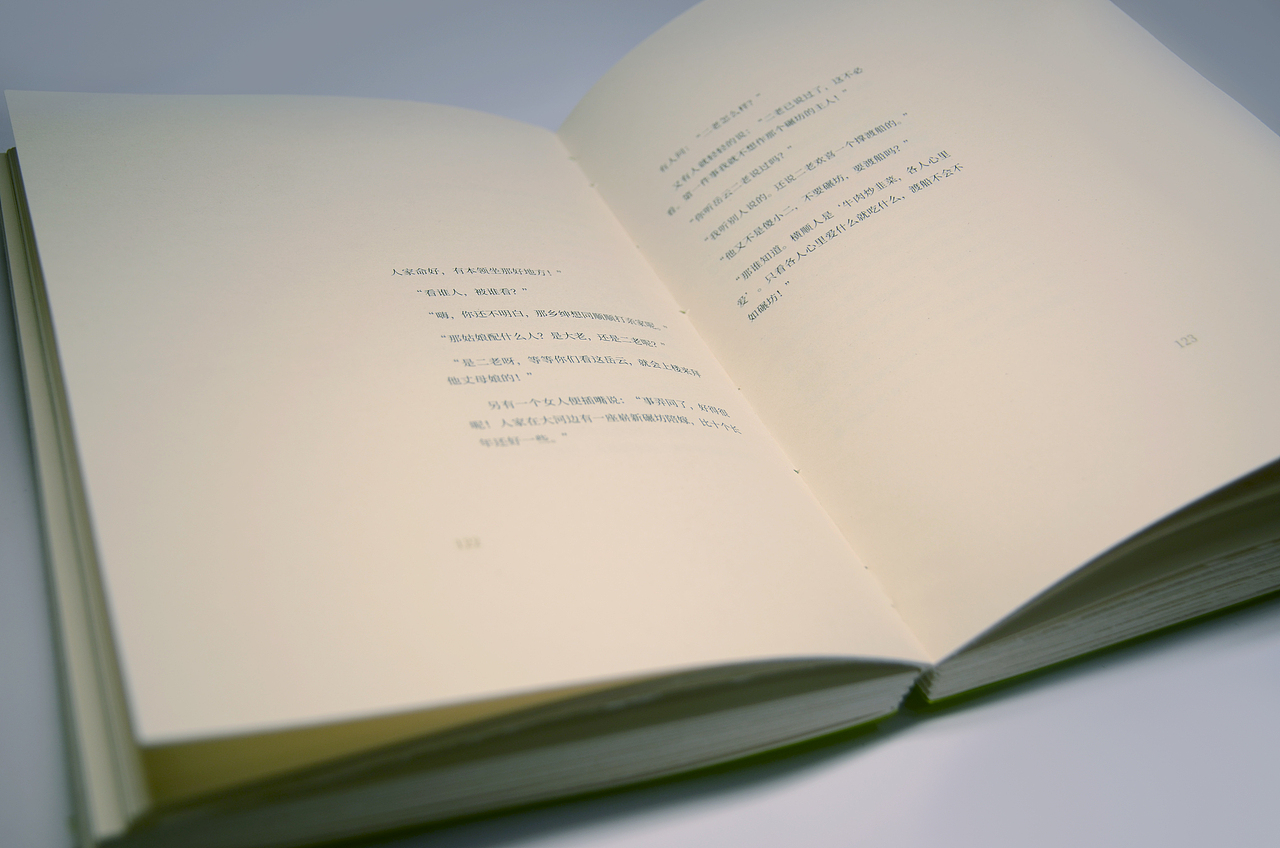 人家命好，有本领坐那好地方！”
“看谁人，被谁看？”
“嗨，你还不明白，那乡绅想同顺顺打亲家呢。”
“那姑娘配什么人？是大老，还是二老呢？”
“是二老呀，等等你们看这岳云，就会上楼来拜
他丈母娘的！”
另有一个女人便插嘴说：“事弄同了，好得很
呢！人家在大河边有一座崭新碾坊陪嫁，比十个长
年还好一些。”
122
有人问：“二老怎么样？”
又有人就轻轻的说：“二老已说过了，这不必
看，第一件事我就不想作那个碾坊的主人！”
“你听岳云二老说过吗？”
“我听别人说的。还说二老欢喜一个撑渡船的。”
“他又不是傻小二，不要碾坊，要渡船吗？”
“那谁知道。横顺人是‘牛肉炒韭菜，各人心里
爱’。只看各人心里爱什么就吃什么，渡船不会不
如碾坊！”
123